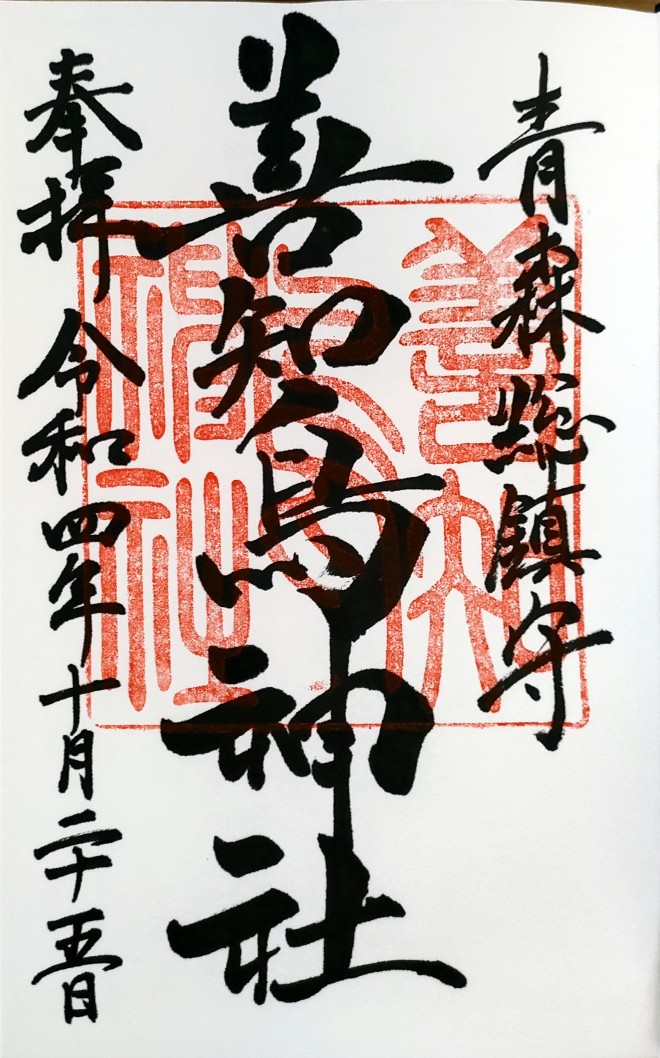 青森総鎮守
善知鳥神社
奉拝 令和四年十月二十五日
善知鳥神社